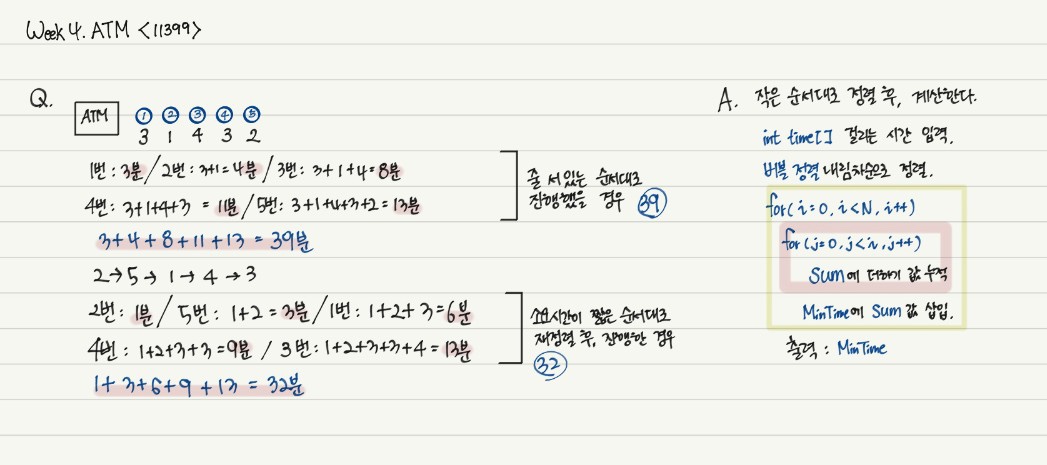 Week 4. ATM <11399>
Q.
ATM ① ② ③ ④ ⑤
3 1 4 3 2
1번: 3분 / 2번: 3+1=4분 / 3번: 3+1+4=8분
4번: 3+1+4+3 = 11분 / 5번: 3+1+4+3+2=13분
3+4+8+11+13 = 39분
줄 서있는 순서대로
진행했을 경우 39
2→5→1→4→3
2번: 1분 / 5번: 1+2=3분 / 1번: 1+2+3=6분
4번: 1+2+3+3=9분 / 3번: 1+2+3+3+4=13분
1+3+6+9+13 = 32분
소요시간이 짧은 순서대로
재정렬 후, 진행한 경우
32
A. 작은 순서대로 정렬 후, 계산한다.
int time[] 걸리는 시간 입력.
버블 정렬 내림차순으로 정렬.
for(i=0, i<N, i++)
for(j=0, j<i, j++)
Sum에 더하기 값 누적
MinTime에 Sum 값 삽입.
출력 : MinTime